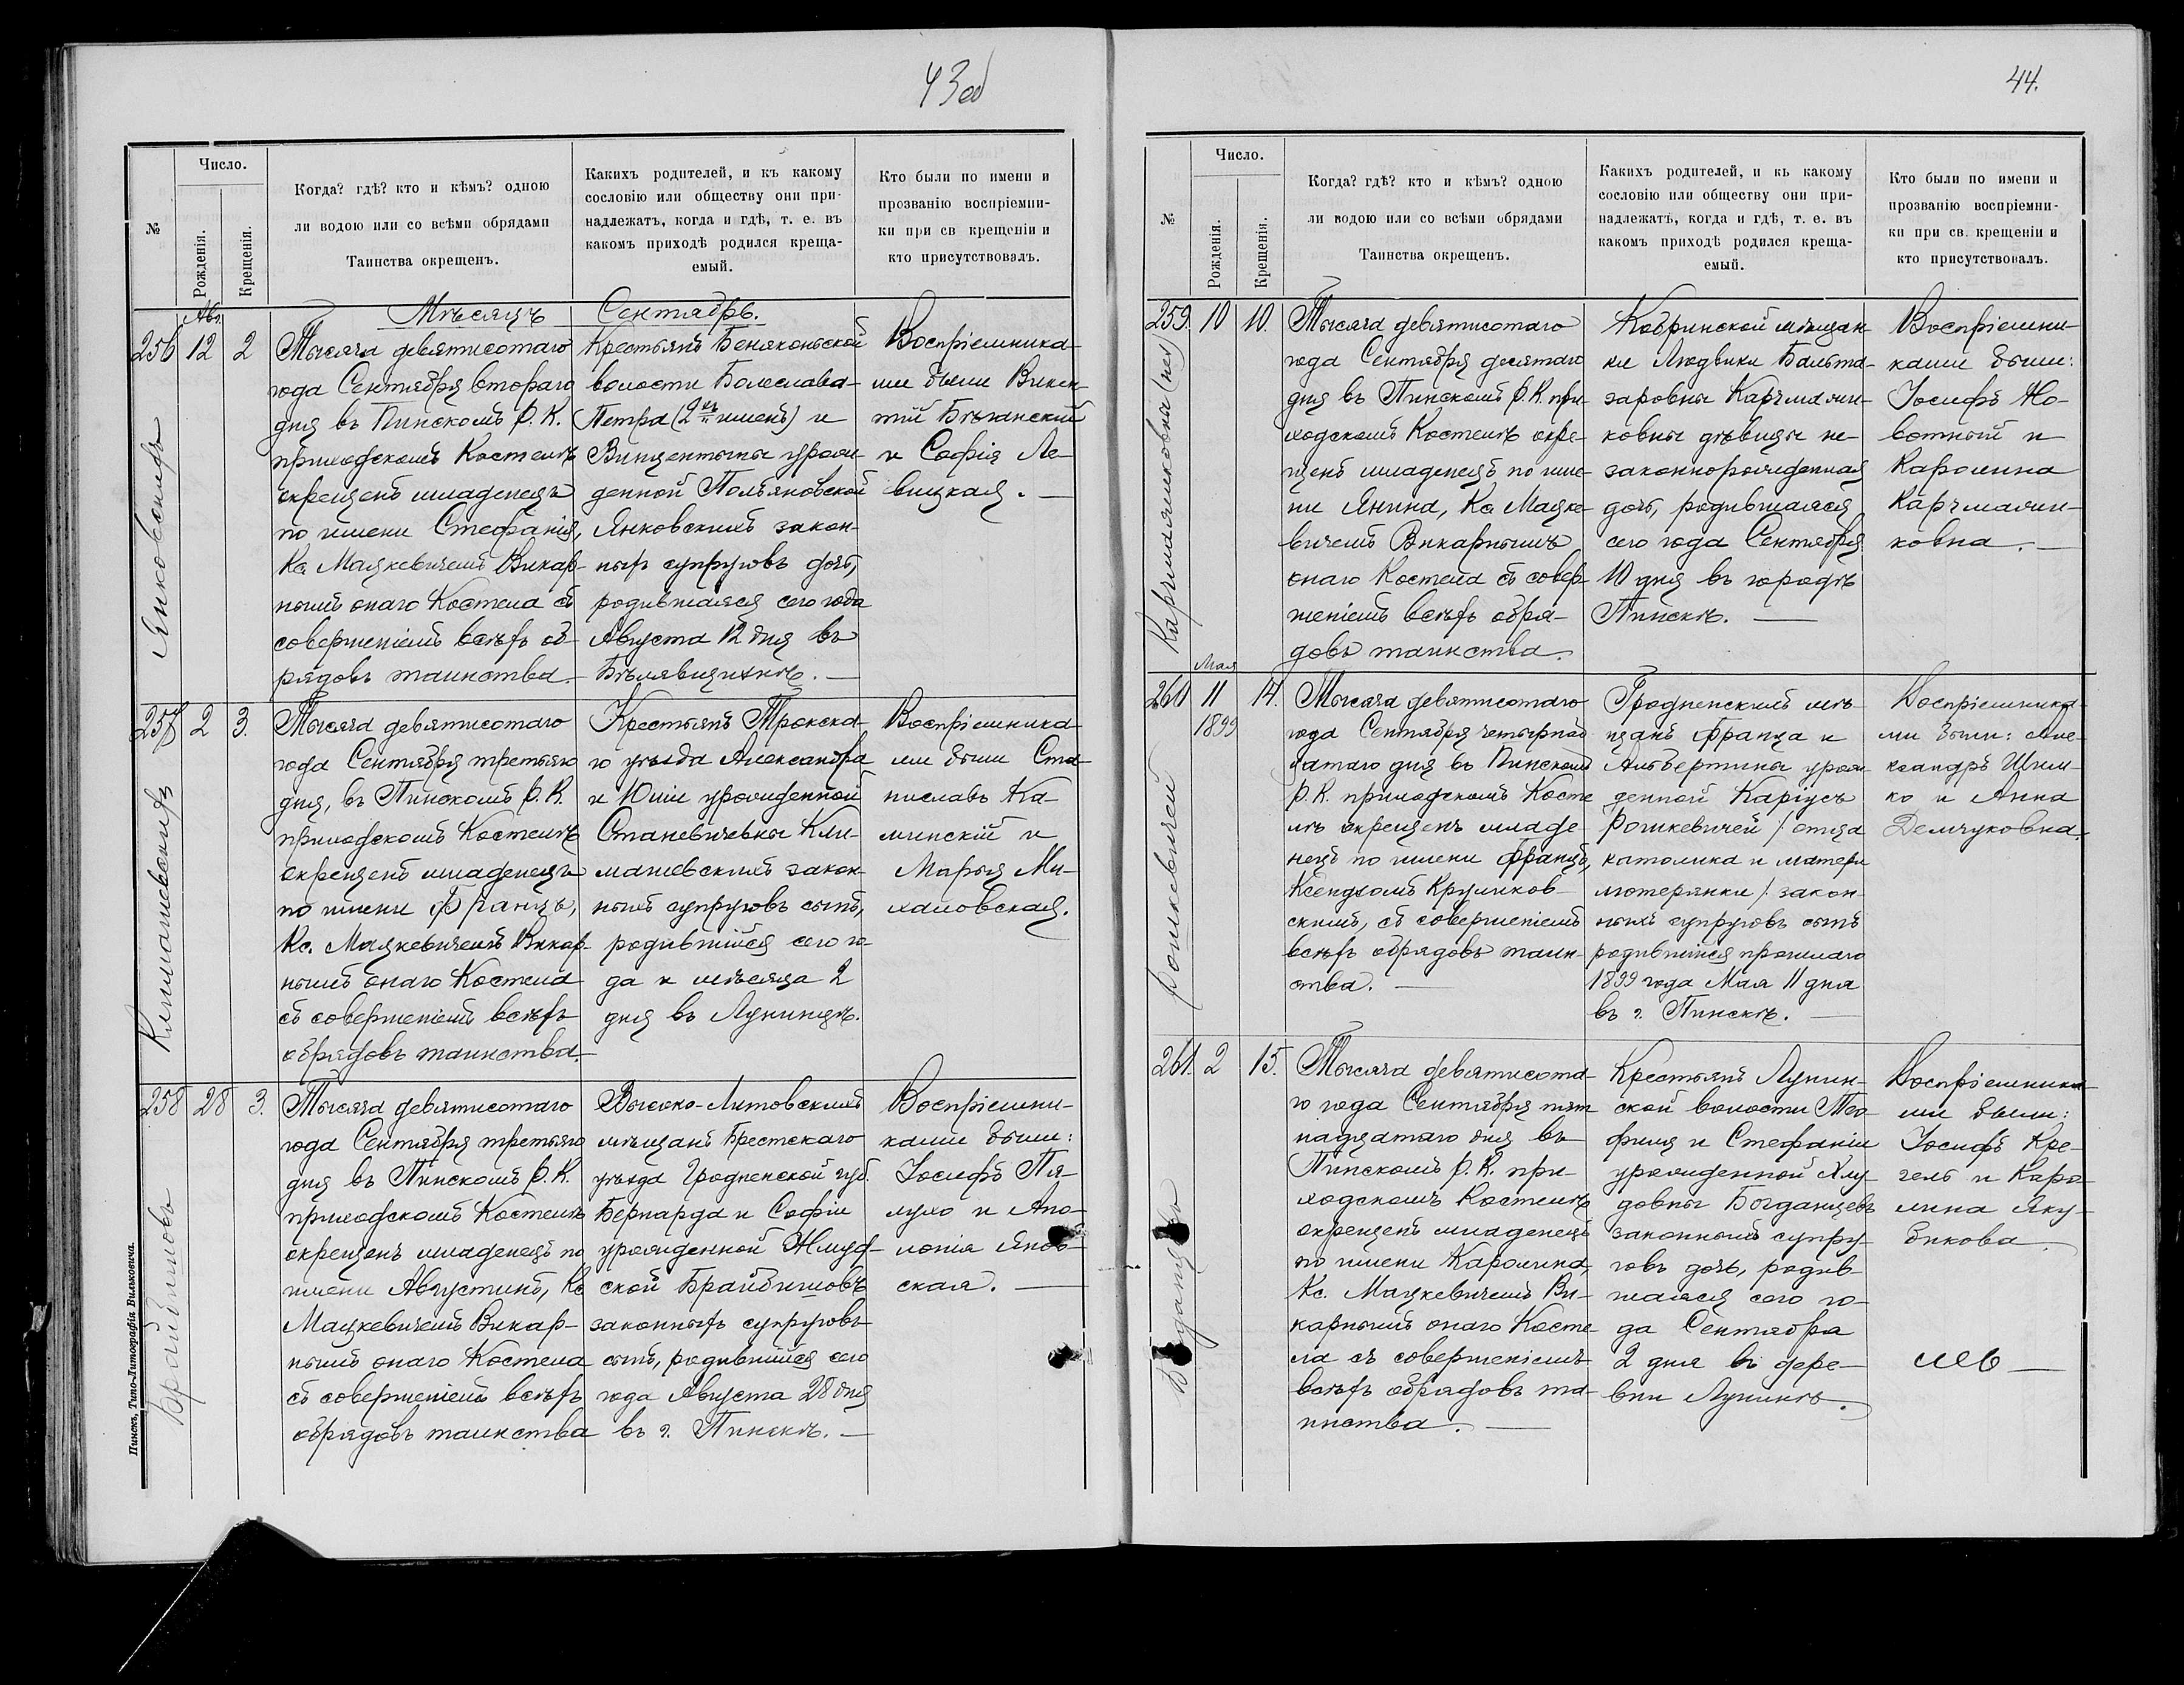 43об
№
Число.
Рожденія.
Крещенія.
Когда? гдѣ? кто и кѣмъ? одною
ли водою или со всѣми обрядами
Таинства окрещенъ.
Какихъ родителей, и къ какому
сословію или обществу они при-
надлежатъ, когда и гдѣ, т. е. въ
какомъ приходѣ родился креща-
емый.
Кто были по имени и
прозванію воспріемни-
ки при св крещеніи и
кто присутствовалъ.
Мѣсяцъ Сентябрь.
256
Авг.
12
2
Янковскихъ
Тысяча девятисотаго
года Сентября втораго
дня въ Пинскомъ Р. К.
приходскомъ Костелѣ
окрещенъ младенецъ
по имени Стефанія,
Кс. Мацкевичемъ Викар-
нымъ онаго Костела съ
совершеніемъ всѣхъ об-
рядовъ таинства.
Крестьянъ Беняконьской
волости Болеслава-
Петра (2хъ именъ) и
Винцентыны урож-
денной Польяновской
Янковскихъ закон-
ныхъ супруговъ дочь,
родившаяся сего года
Августа 12 дня въ
Воспріемника-
ми были Викен-
тій Бѣганскій
и Софія Ле-
вицкая.
257
2
3.
Климашевскихъ
Тысяча девятисотаго
года Сентября третьяго
дня, въ Пинскомъ Р. К.
приходскомъ Костелѣ
окрещенъ младенецъ
по имени Францъ,
Кс. Мацкевичемъ Викар-
нымъ онаго Костела
съ совершеніемъ всѣхъ
обрядовъ таинства.
Крестьянъ Трокска-
го уѣзда Александра
и Юліи урожденной
Станевичевны Кли-
машевскихъ закон-
ныхъ супруговъ сынъ,
родившійся сего го-
да и мѣсяца 2
дня въ Лунинцѣ.
Воспріемника-
ми были Ста-
ниславъ Ка-
минскій и
Марья Ми-
халовская.
258
28
3.
Брайбишовъ
Тысяча девятисотаго
года Сентября третьяго
дня въ Пинскомъ Р. К.
приходскомъ Костелѣ
окрещенъ младенецъ по
имени Августинъ, Кс
Мацкевичемъ Викар-
нымъ онаго Костела
съ совершеніемъ всѣхъ
обрядовъ таинства
Высоко-Литовскихъ
мѣщанъ Брестскаго
уѣзда Гродненской губ.
Бернарда и Софіи
урожденной Жмуд-
ской Брайбишовъ
законныхъ супруговъ
сынъ, родившійся сего
года Августа 28 дня
въ г. Пинскѣ.
Воспріемни-
ками были:
Іосифъ Пя-
лухо и Апо-
лонія Янов-
ская.
Пинскъ, Типо-Литографія Вильковича.
44.
№
Число.
Рожденія.
Крещенія.
Когда? гдѣ? кто и кѣмъ? одною
ли водою или со всѣми обрядами
Таинства окрещенъ.
Какихъ родителей, и къ какому
сословію или обществу они при-
надлежатъ, когда и гдѣ, т. е. въ
какомъ приходѣ родился креща-
емый.
Кто были по имени и
прозванію воспріемни-
ки при св. крещеніи и
кто присутствовалъ.
259.
10
10.
Карчмажиковня (нез)
Тысяча девятисотаго
года Сентября десятаго
дня въ Пинскомъ Р. К. при-
ходскомъ Костелѣ окре-
щенъ младенецъ по име-
ни Янина, Кс. Мацке-
вичемъ Викарнымъ
онаго Костела съ совер-
шеніемъ всѣхъ обря-
довъ таинства.
Кобринской мѣщан-
ки Людвики Бальта-
заровны Карчмажи-
ковны дѣвицы не-
законнорожденная
дочь, родившаяся
сего года Сентября
10 дня въ городѣ
Пинскѣ.
Воспріемни-
ками были:
Іосифъ Жо-
вотный и
Каролина
Карчмажи-
ковна.
260
Мая
11
1899
14.
Рошкевичей
Тысяча девятисотаго
года Сентября четырнад
цатаго дня въ Пинскомъ
Р. К. приходскомъ Косте
лѣ окрещенъ младе-
нецъ по имени Францъ,
Ксендзомъ Круликов-
скимъ, съ совершеніемъ
всѣхъ обрядовъ таин-
ства.
Гродненскихъ мѣ-
щанъ Франца и
Альбертины урож-
денной Каріусъ
Рошкевичей /: отца
католика и матери
лютерянки /: закон-
ныхъ супруговъ сынъ
родившійся прошлаго
1899 года Мая 11 дня
въ г. Пинскѣ.
Воспріемника-
ми были: Але-
ксандръ Шим-
ко и Анна
Демчуковна.
261.
2
15.
Тысяча девятисота-
го года Сентября пят
надцатаго дня въ
Пинскомъ Р. К. при-
ходскомъ Костелѣ
окрещенъ младенецъ
по имени Каролина,
Кс. Мацкевичемъ Ви-
карнымъ онаго Косте-
ла съ совершеніемъ
всѣхъ обрядовъ та-
инства.
Крестьянъ Лунин-
ской волости Тео-
филя и Стефаніи
урожденной Хлу-
довны Богданцевъ
законныхъ супру-
говъ дочь, родив-
шаяся сего го-
да Сентября
2 дня въ дере-
вни Лунинѣ.
Воспріемника-
ми были:
Іосифъ Кре-
гель и Каро-
лина Яку-
бикова.